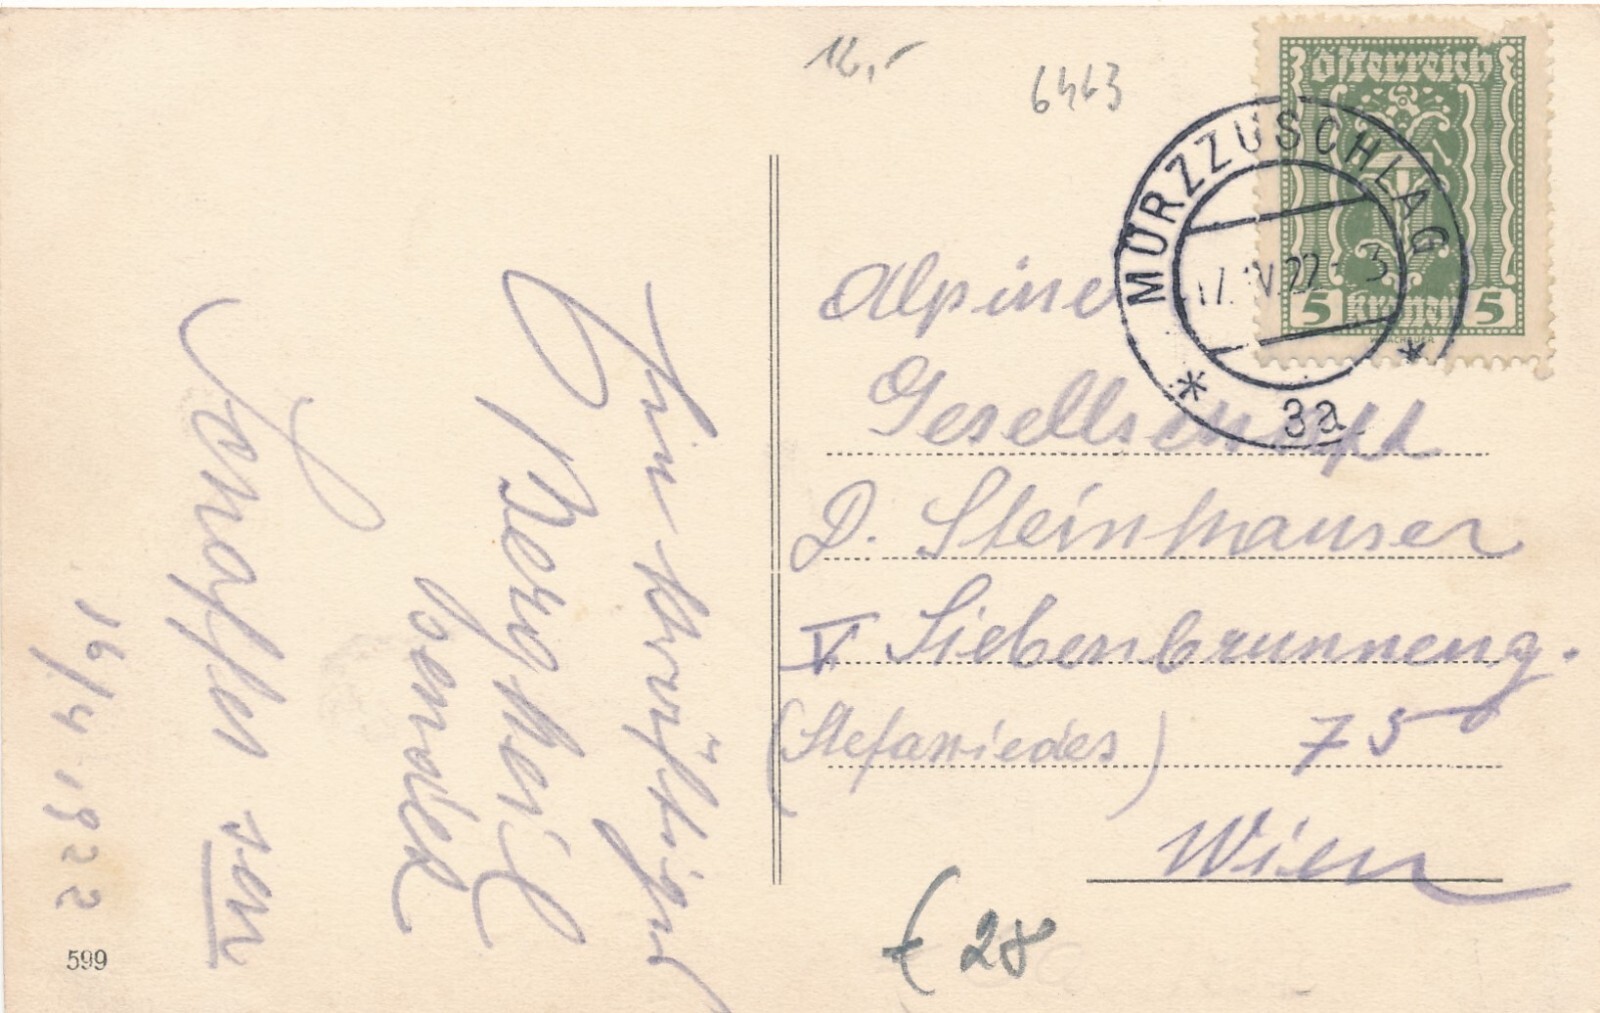 12,-
6463
Österreich
5 Kronen 5
MÜRZZUSCHLAG
17.IV.22-3
* 3a *
Alpine
Gesellschaft
D. Steinhauser
V Siebenbrunneng.
(Stefanie 75
Wien
€ 28
Ein kräftiges
Berg Heil
sendet
sen
16/4 1922
599